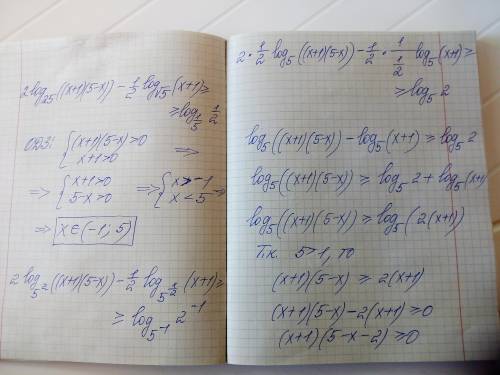 2log₂₅((x+1)(5-x)) - 1/2 log_√5 (x+1) ≥
≥ log_{1/5} 1/2
ОДЗ: { (x+1)(5-x)>0
x+1>0 ⇒
⇒ { x+1>0
5-x>0 ⇒ { x>-1
x<5 ⇒
⇒ x∈(-1; 5)
2log_{5²}((x+1)(5-x)) - 1/2 log_{5^{1/2}} (x+1) ≥
≥ log_{5⁻¹} 2⁻¹
2 · 1/2 log₅((x+1)(5-x)) - 1/2 · 1/(1/2) log₅(x+1) ≥
≥ log₅2
log₅((x+1)(5-x)) - log₅(x+1) ≥ log₅2
log₅((x+1)(5-x)) ≥ log₅2 + log₅(x+1)
log₅((x+1)(5-x)) ≥ log₅(2(x+1))
Т.к. 5>1, то
(x+1)(5-x) ≥ 2(x+1)
(x+1)(5-x) - 2(x+1) ≥ 0
(x+1)(5-x-2) ≥ 0